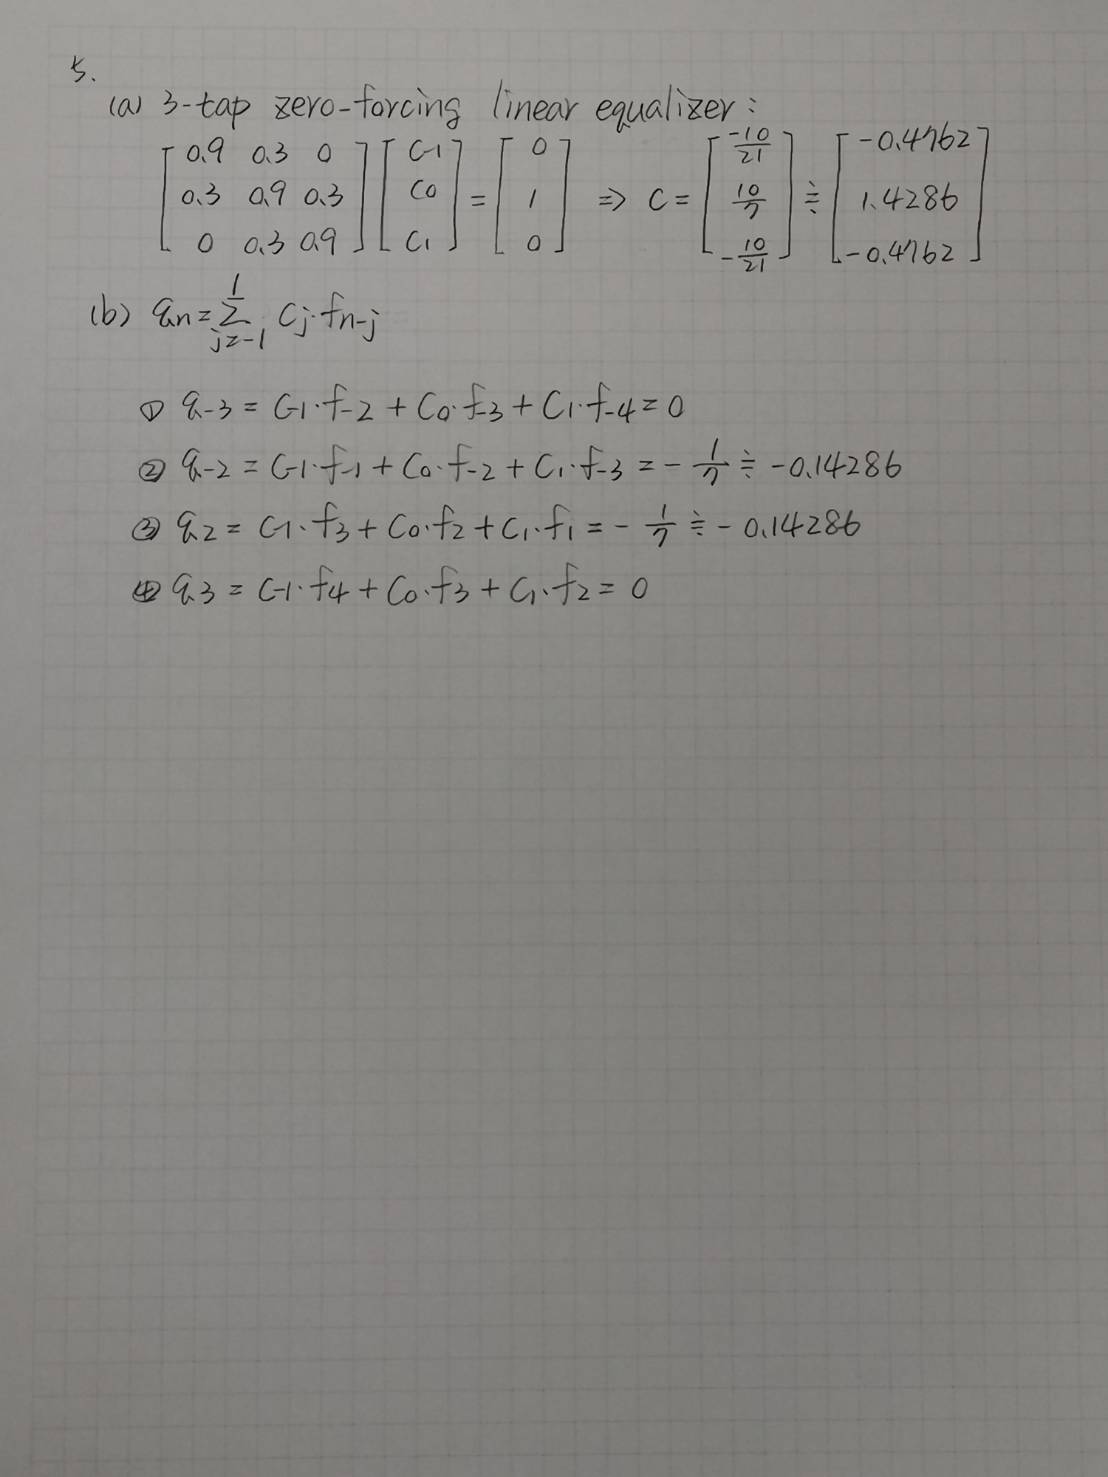 5.
(a) 3-tap zero-forcing linear equalizer:
[0.9 0.3 0; 0.3 0.9 0.3; 0 0.3 0.9] [C-1; C0; C1] = [0; 1; 0] ⇒ C = [-10/21; 10/7; -10/21] ≒ [-0.4762; 1.4286; -0.4762]
(b) qn = Σ_{j=-1}^{1} Cj·fn-j
① q-3 = C-1·f-2 + C0·f-3 + C1·f-4 = 0
② q-2 = C-1·f-1 + C0·f-2 + C1·f-3 = -1/7 ≒ -0.14286
③ q2 = C-1·f3 + C0·f2 + C1·f1 = -1/7 ≒ -0.14286
④ q3 = C-1·f4 + C0·f3 + C1·f2 = 0